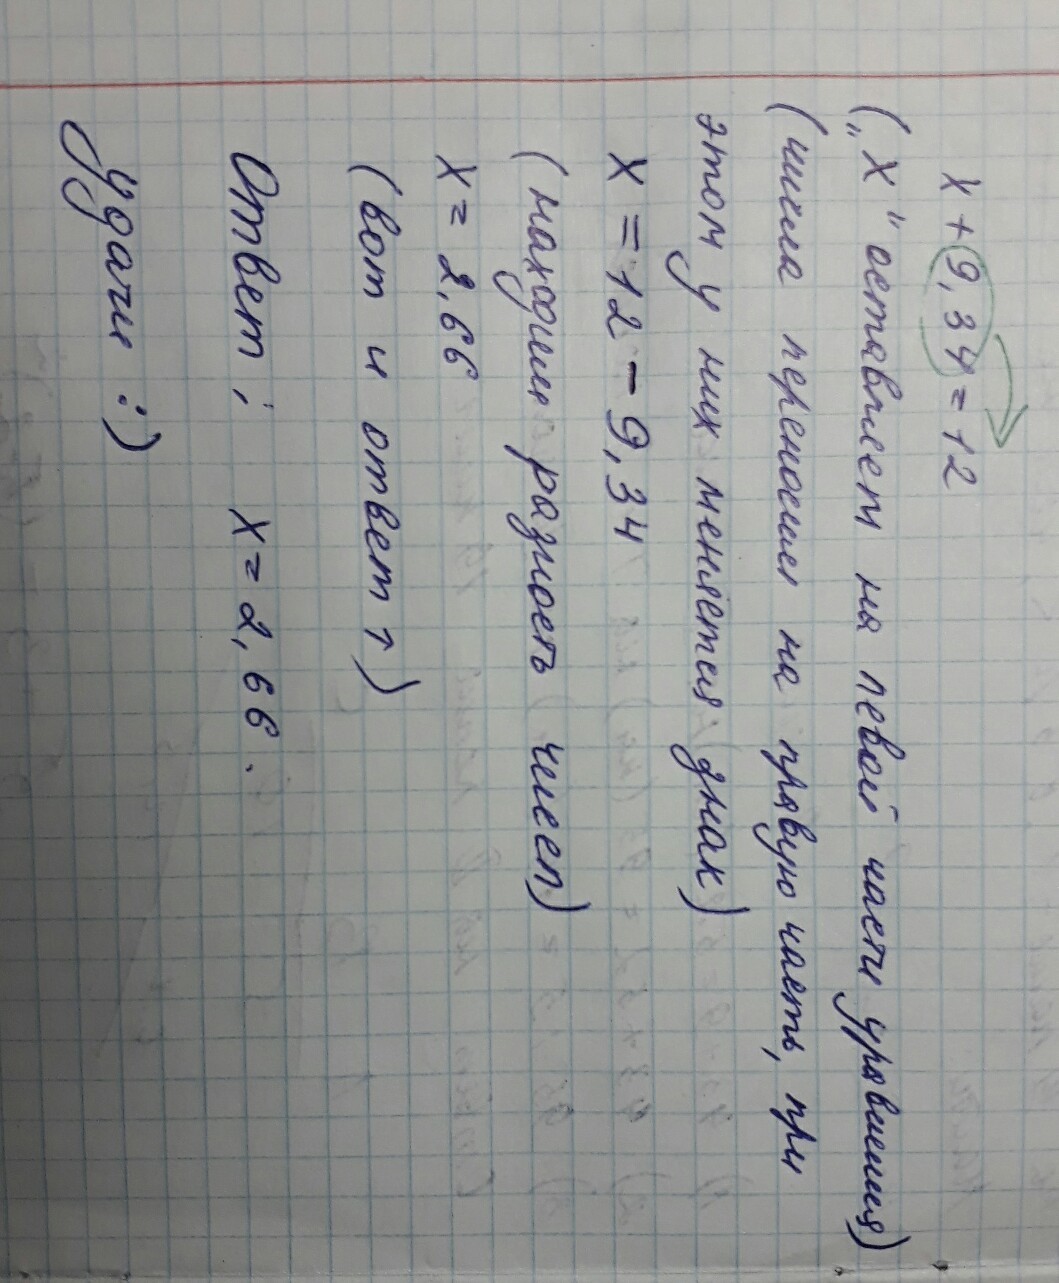 x + 9,34 = 12
(„x" оставляем на левой части уравнения)
(числа переносим на правую часть, при
этом у них меняется знак)
x = 12 - 9,34
(находим разность чисел)
x = 2,66
(вот и ответ ↑)
Ответ: x = 2,66.
Удачи :)